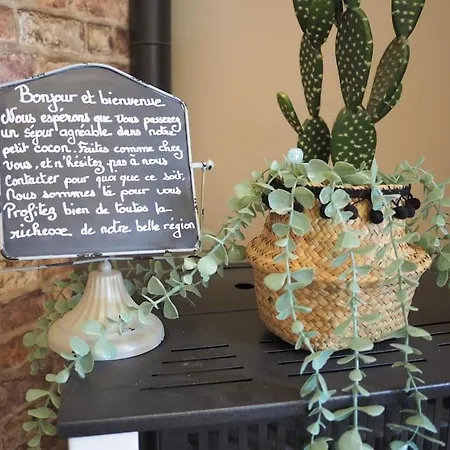 Bonjour et bienvenue
Nous espérons que vous passerez
un séjour agréable dans notre
petit cocon. Faites comme chez
vous, et n'hésitez pas à nous
contacter pour quoi que ce soit,
Nous sommes là pour vous
Profitez bien de toutes la
richesse de notre belle région